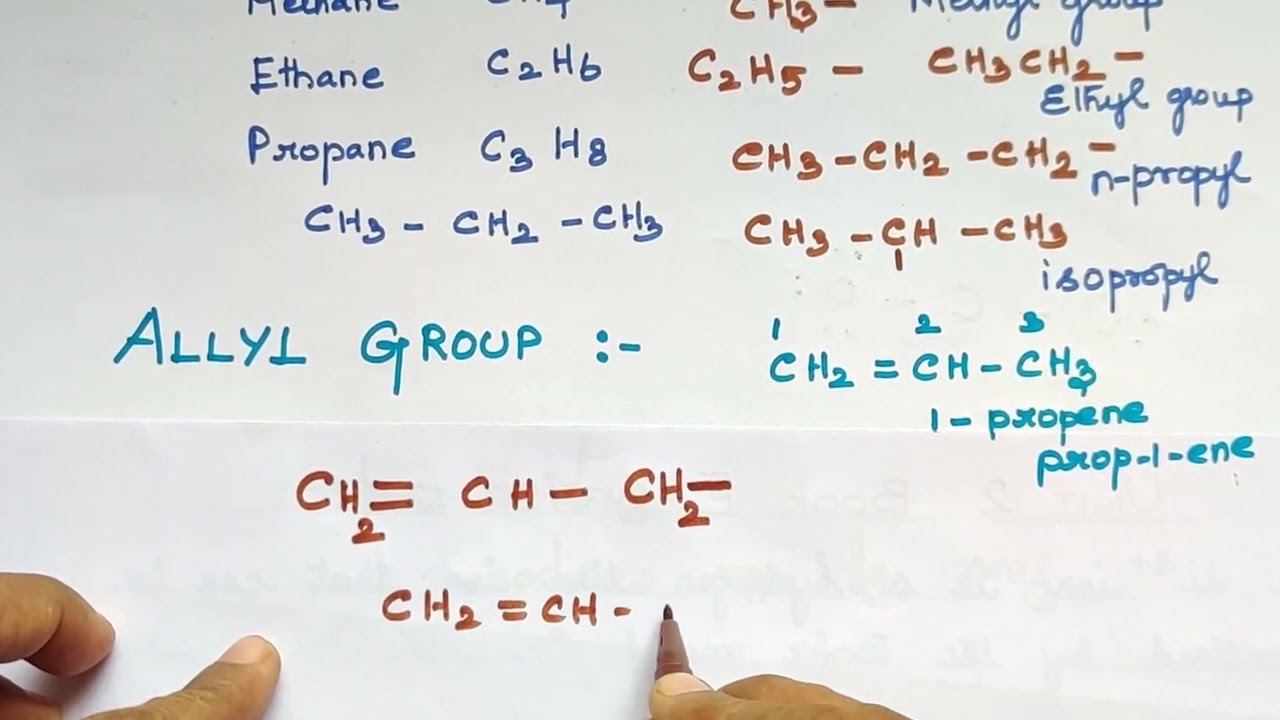 Methane CH4 CH3 - Methyl group
Ethane C2H6 C2H5 - CH3CH2 -
Ethyl group
Propane C3H8 CH3 - CH2 - CH2 -
n-propyl
CH3 - CH2 - CH3 CH3 - CH - CH3
isopropyl
1 2 3
ALLYL GROUP :- CH2 = CH - CH3
1 - propene
prop-1-ene
CH2 = CH - CH2 -
CH2 = CH -